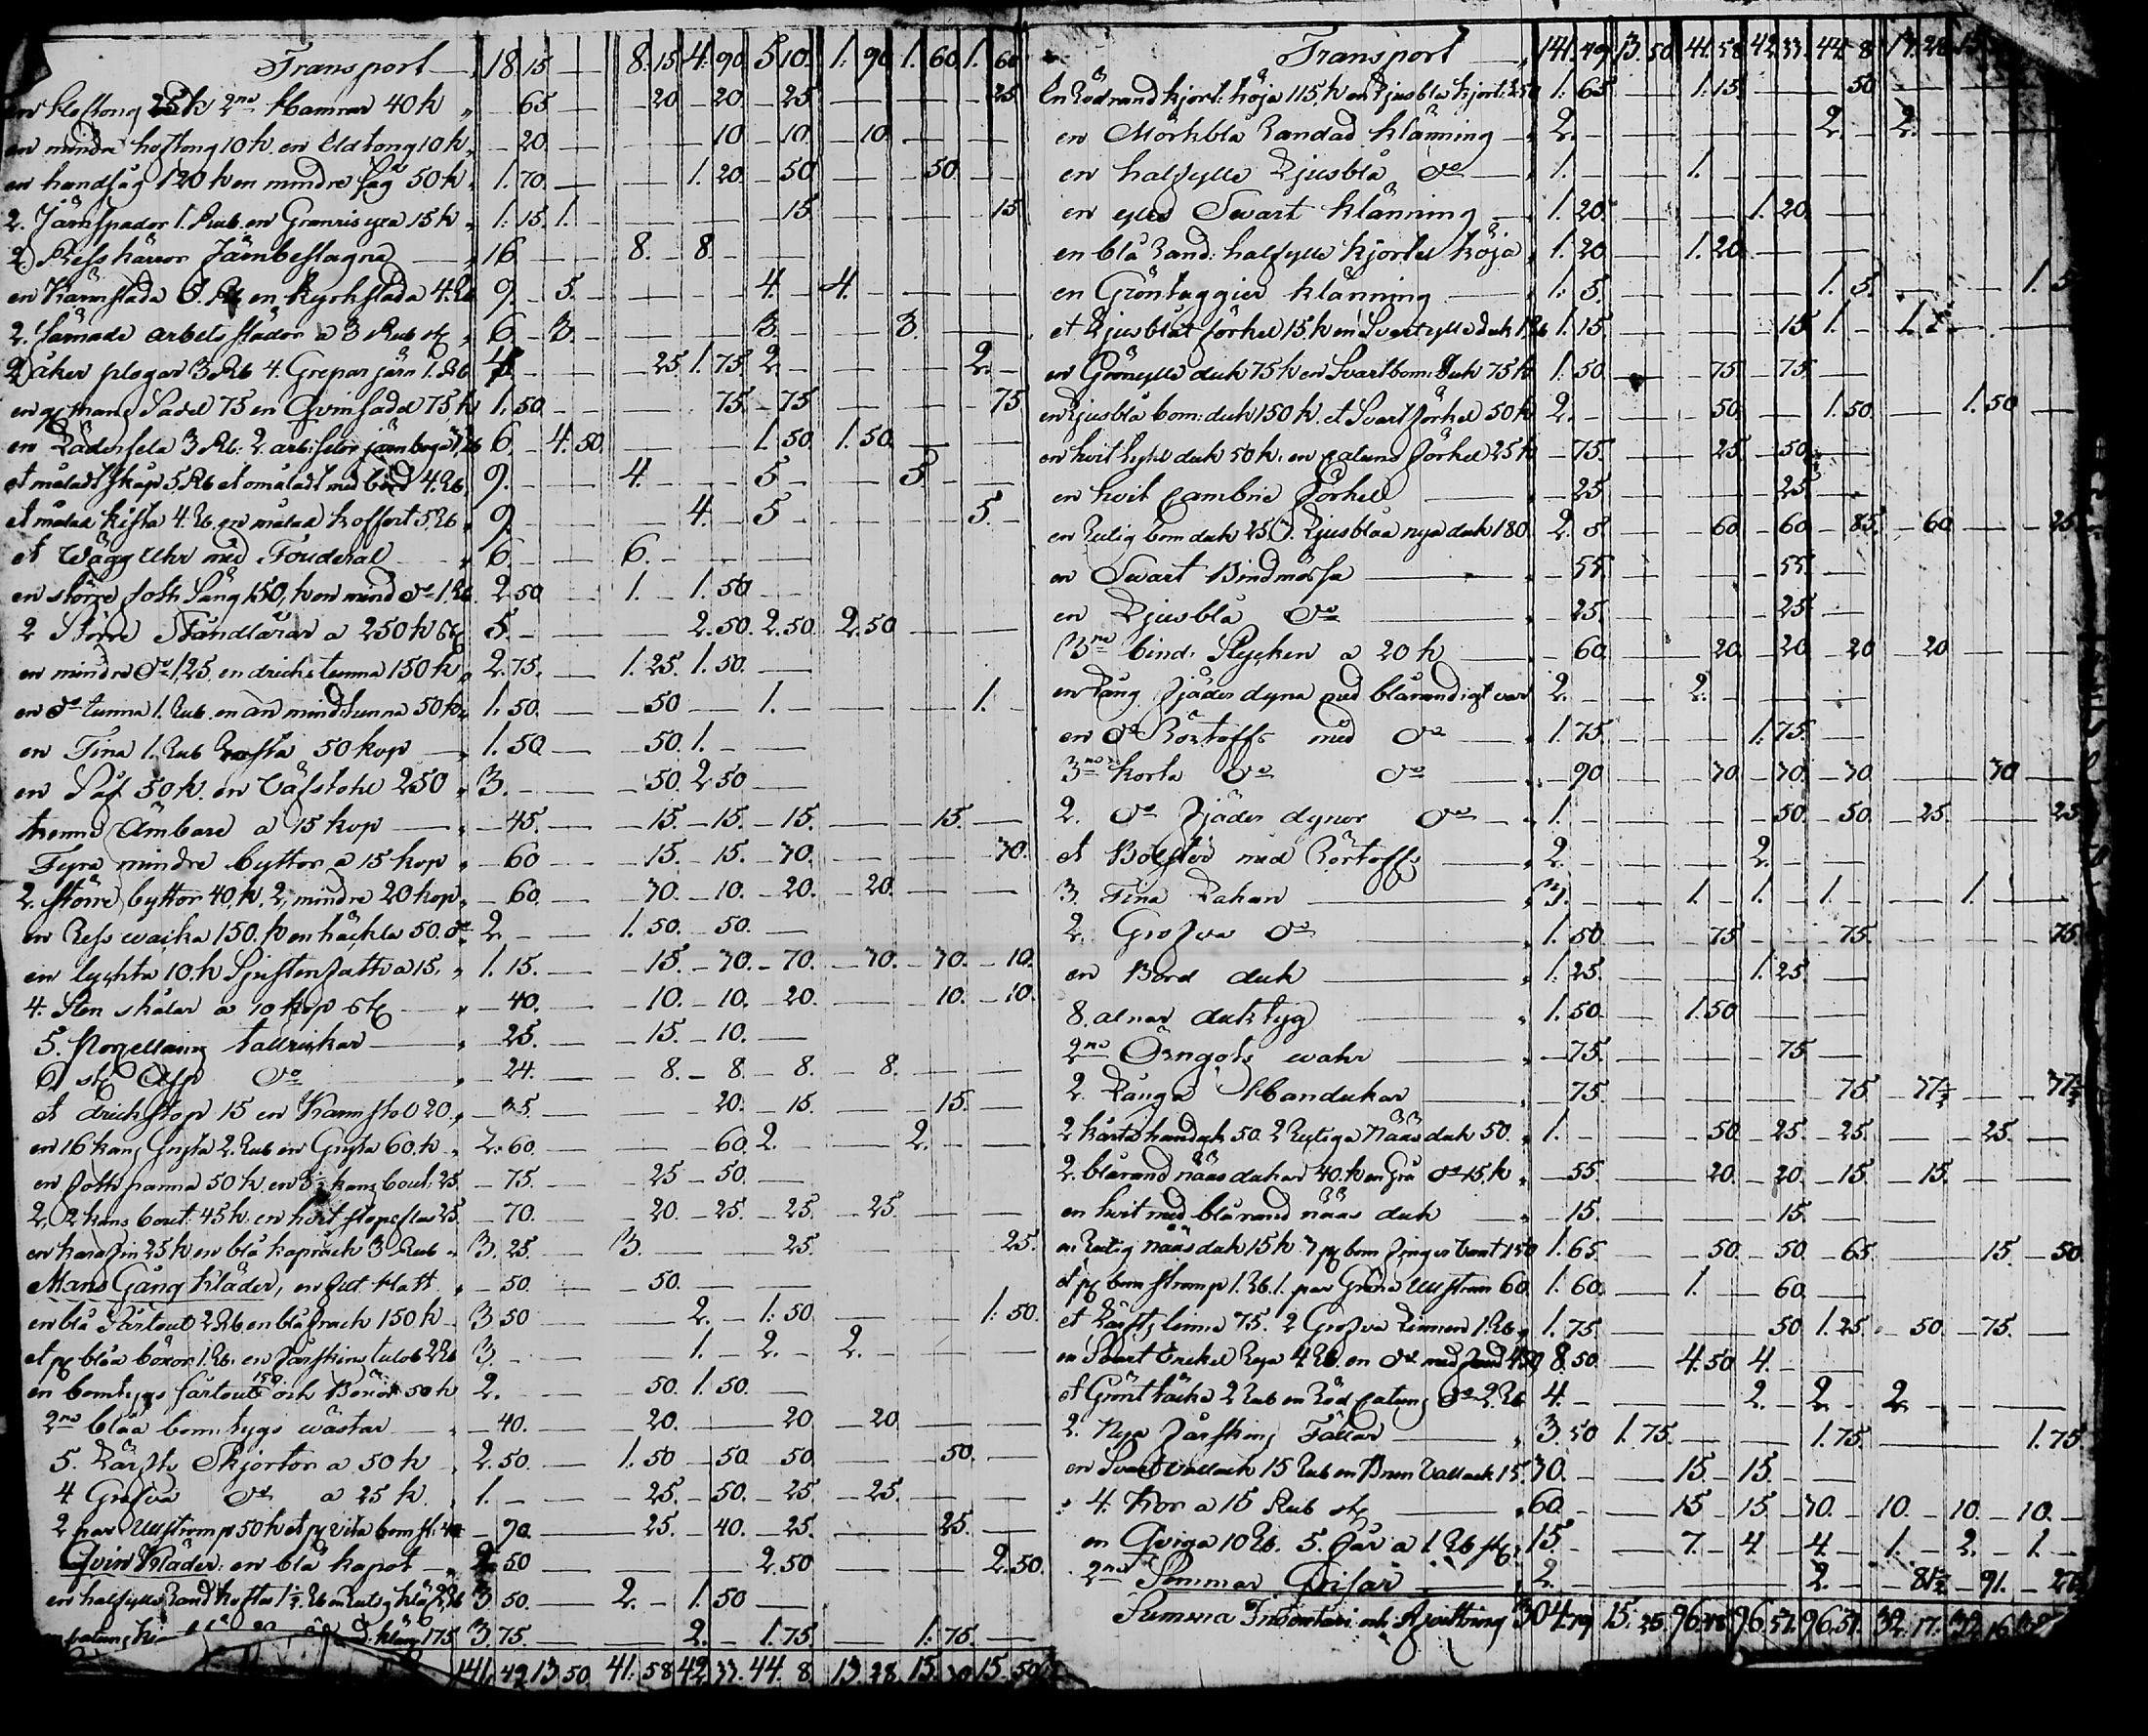 Transport 18 15 — 8. 15 4. 90 5 10. 1. 90 1. 60. 1. 60
en Hoftong 25 k 2ne Hamrar 40 k „ — 65 — — 20 — 20 — 25 — — 25
en mindre hoftong 10 k. en Eldtong 10 k. — 20. — 10 — 10. — 10 —
en handsåg 120 k en mindre såg 50 k „ 1. 70. — — 1. 20 — 50 — — 50. —
2. Järnspador 1. Rub. en Granrisyxa 15 k „ 1. 15. 1. — — 15 — — 15
2. Resskärror Järnbeslagna — „ 16 — 8. — 8. —
en Kärrnslåda 5. Rb en Kyrkslåda 4. Rb 9. — 5. — — 4. — 4. — —
2. Sämade arbets slädor a 3 Rub st „ 6 — 3. — — 3. — — 3. —
2 åker plogar 3 Rb 4. Grepar järn 1. Rb 4. — — 25 1. 75 2. — — 2. —
en Mans Sadel 75 en Qvinsadel 75 k 1. 50. — — 75. — 75 — — 75
en Rädersela 3 Rb. 2. arb. selor 6. — 4. 50. — 1. 50 1. 50. —
et måladt skåp 5. Rb et omåladt med bord 4. Rb. 9. — — 4. — — 5 — — 5 —
et målad kista 4. Rb. en målad koffort 5. Rb „ 9. — — 4. — 5 — — 5. —
et Wägg Uhr med Fouderal — „ 6. — — 6. — —
en större Soth Säng 150, k en mind do 1. Rb. 2 50 — 1. — 1. 50 —
2 Större Ståndlårar a 250 k st 5. — — 2. 50. 2. 50 2. 50 —
en mindre do 1,25. en dricks tunna 150 k „ 2. 75. — 1. 25. 1. 50. —
en do tunna 1. Rub. en an mind tunna 50 k „ 1. 50. — — 50 — 1. — — 1. —
en Tina 1. Rub 50 kop — 1. 50 — — 50. 1. — —
en Såf 50 k. en Väfstohl 250 „ 3. — — 50. 2 50 —
trenne Ämbare a 15 kop — „ — 45. — — 15. — 15. — 15. — — 15. —
Fyra mindre byttor a 15 kop „ — 60 — — 15. — 15. — 30. — — 30.
2. större byttor 40, k. 2, mindre 20 kop „ — 60. — — 30. — 10. — 20. — 20. —
en Ress wacka 150. k en häckla 50. do „ 2. — — 1. 50. — 50. —
en lychta 10. k Sju sten fath a 15. „ 1. 15. — — 15. — 30. — 30. — 30. — 30. — 10.
4. Sten skålar a 10 kop st — „ — 40. — — 10. — 10. — 20. — — 10. — 10.
5. Porzellains tallrickar — „ — 25. — — 15. — 10. —
6. st Asp do — „ — 24. — — 8. — 8. — 8. — 8. —
et drickstop 15 en Kannstol 20. „ — 35. — — 20. — 15. — — 15. —
en 16 kan Gryta 2. Rub en Gryta 60. k „ 2. 60. — — 60. 2. — — 2. —
en Soth panna 50 k. en 3 kan bout. 25 — 75. — — 25 — 50. —
2. 2 kans bout: 45 k. en hvit 25. — 70. — — 20. — 25. — 25. — 25. —
en karafin 25 k. en blå kaprock 3 Rub „ 3. 25. — 3. — — 25. — — 25.
Mans Gång Kläder, en Hatt „ — 50. — — 50. —
en blå Sürtout 2 Rb en blå frack 150 k — 3 50 — — 2. — 1. 50. — — 1. 50.
et pr blåa böxor 1. Rb. en fårskins tulob 2 Rb 3. — — 1. — 2. — 2. —
en bomtygs sürtout 150. och Böxor 50 k 2. — — 50. 1. 50. —
2ne blåa bom. tygs wästar — „ — 40. — — 20. — — 20. — 20. —
5. Lärfts Skjortor a 50 k „ 2. 50. — 1. 50 — 50 — 50. — — 50. —
4 Grofva do a 25 k. 1. — — — 25. — 50. — 25. — 25. —
2 par Ullstrump 50 k et pr vita bomst: 40 — 90. — — 25. — 40. — 25. — — 25. —
Qvin Kläder: en blå kapot — „ 2. 50 — — 2. 50 — — 2. 50.
en halfylle Rand Kofta 1½. Rb en Rutig kläd 2 Rb 3 50. — 2. — 1. 50 —
kläng 175 3. 75. — — 2. — 1. 75. — 1. 75. —
141. 49 13. 50. 41. 58 42. 33. 44. 8 13. 28 15. 30 15. 50
Transport — 141. 49 13. 50 41. 58 42. 33. 44. 8 13. 28 15.
En Röd rand kjort: töja 115. k en Ljusblå kjort: 250 1. 65 — 1. 15. — — 50 —
en Mörkblå Randad klänning — „ 2. — — 2. — 2. —
en halfylle Ljusblå do — „ 1. — — 1. —
en ylle Svart klänning — „ 1. 20. — — 1. 20. —
en blå Rand: halfylle kjortel töja „ 1. 20. — 1. 20. —
en Gröntaggier klänning — „ 1. 5. — — 1. 5. — — 1. 5
et Ljusblåt förkel 15 k en Svart ylle duk 1 Rb 1. 15. — — 15 1. — 1. —
en Grönylle duk 75 k en Svart bom: duk 75 k 1. 50. — — 75. — 75. —
en Ljusblå bom: duk 150 k. et Svart förkel 50 k 2. — — 50. — 1. 50. — 1. 50 —
en hvit tykel duk 50 k. en catuns förkel 25 k — 75. — — 25. — 50. —
en hvit Cambrie förkel — — 25. — — 25. —
en Rutig bom duk 25. 3. Ljusblåa nya duk 180 2. 5. — — 60. — 60. — 85. — 60 — — 25
en Svart Bindmössa — „ — 55. — — 55. —
en Ljusblå do — „ — 25. — — 25. —
3ne bind: Stycken a 20 k — — 60. — — 20. — 20. — 20 — 20 —
en Lång fjäder dyna med blårandigt var 2. — — 2. —
en do Rörtoffs med do — „ 1. 75. — — 1. 75. —
3ne korta do do — „ — 90 — — 30. — 30. — 30. — — 30 —
2. do fjäder dynor do — „ 1. — — 50. — 50. — 25. — — 25.
et Bolster med Rörtoffs — „ 2. — — 2. —
3. Fina Lakan — „ 3. — — 1. — 1. — 1. — — 1. —
2. Grofva do — 1. 50 — — 75 — — 75. — — 75.
en Bord duk — 1. 25. — — 1. 25. —
8. alnar duktyg — „ 1. 50. — 1. 50 —
2ne Örngots wahr — „ — 75. — — 75 —
2. Långa Handukar — „ — 75 — — 75 — 37½ — — 37½
2 kårta handuk 50. 2 Rutiga Näsduk 50. „ 1. — — 50. — 25. — 25. — — 25. —
2. blårand näsdukar 40. k en Grå do 15. k „ — 55. — — 20. — 20. — 15. — 15. —
en hvit med blårand näsduk — „ — 15. — — 15. —
en Rutig näsduk 15 k 3 pr bom finger vant 150 1. 65 — — 50. — 50. — 65. — — 15. — 50.
et pr bom strump 1. Rb. 1. par Gråa Ullstrum 60 1. 60. — 1. — 60. —
et Lärfts lenne 75. 2 Grofva Linnen 1. Rb „ 1. 75. — — 50 1. 25. — 50. — 75. —
en Svart Enkel Reja 4 Rb. en do med foud 450 8. 50. — 4. 50 4. —
et Grönt täcke 2 Rub en Röd catuns do 2. Rb 4. — — 2. — 2. — 2. —
2. Nya fårskins Fällar — „ 3. 50 1. 75. — — 1. 75. — — 1. 75
en Svart vallack 15 Rub en Brun Vallack 15. 30. — — 15. — 15. —
4. Kor a 15 Rub st — 60. — — 15 — 15 — 30. — 10. — 10. — 10. —
en Qviga 10 Rb. 5. Får a 1. Rb st „ 15. — — 7. — 4 — 4. — 1. — 2. — 1. —
2ne Sommar Grisar — „ 2. — — 2. — — 91. —
Summa Inventari och Aqvittning 304. 79 15. 25. 96. 96. 57. 96. 51. 32. 17. 32. 16